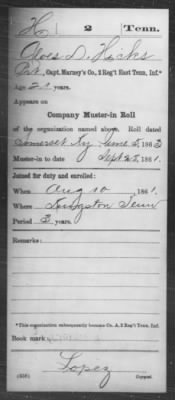 H 2 Tenn.
D. Hicks
Pvt., Capt. Marney's Co., 2 Reg't East Tenn. Inf.*
Age years.
Appears on
Company Muster-in Roll
of the organization named above. Roll dated
Somerset Ky June 5, 1863
Muster-in to date Sept 28, 1861.
Joined for duty and enrolled:
When Aug 10, 1861.
Where Kingston Tenn
Period 3 years.
Remarks:
*This organization subsequently became Co. A, 2 Reg't Tenn. Inf.
Book mark:
Lopez
(356) Copyist.